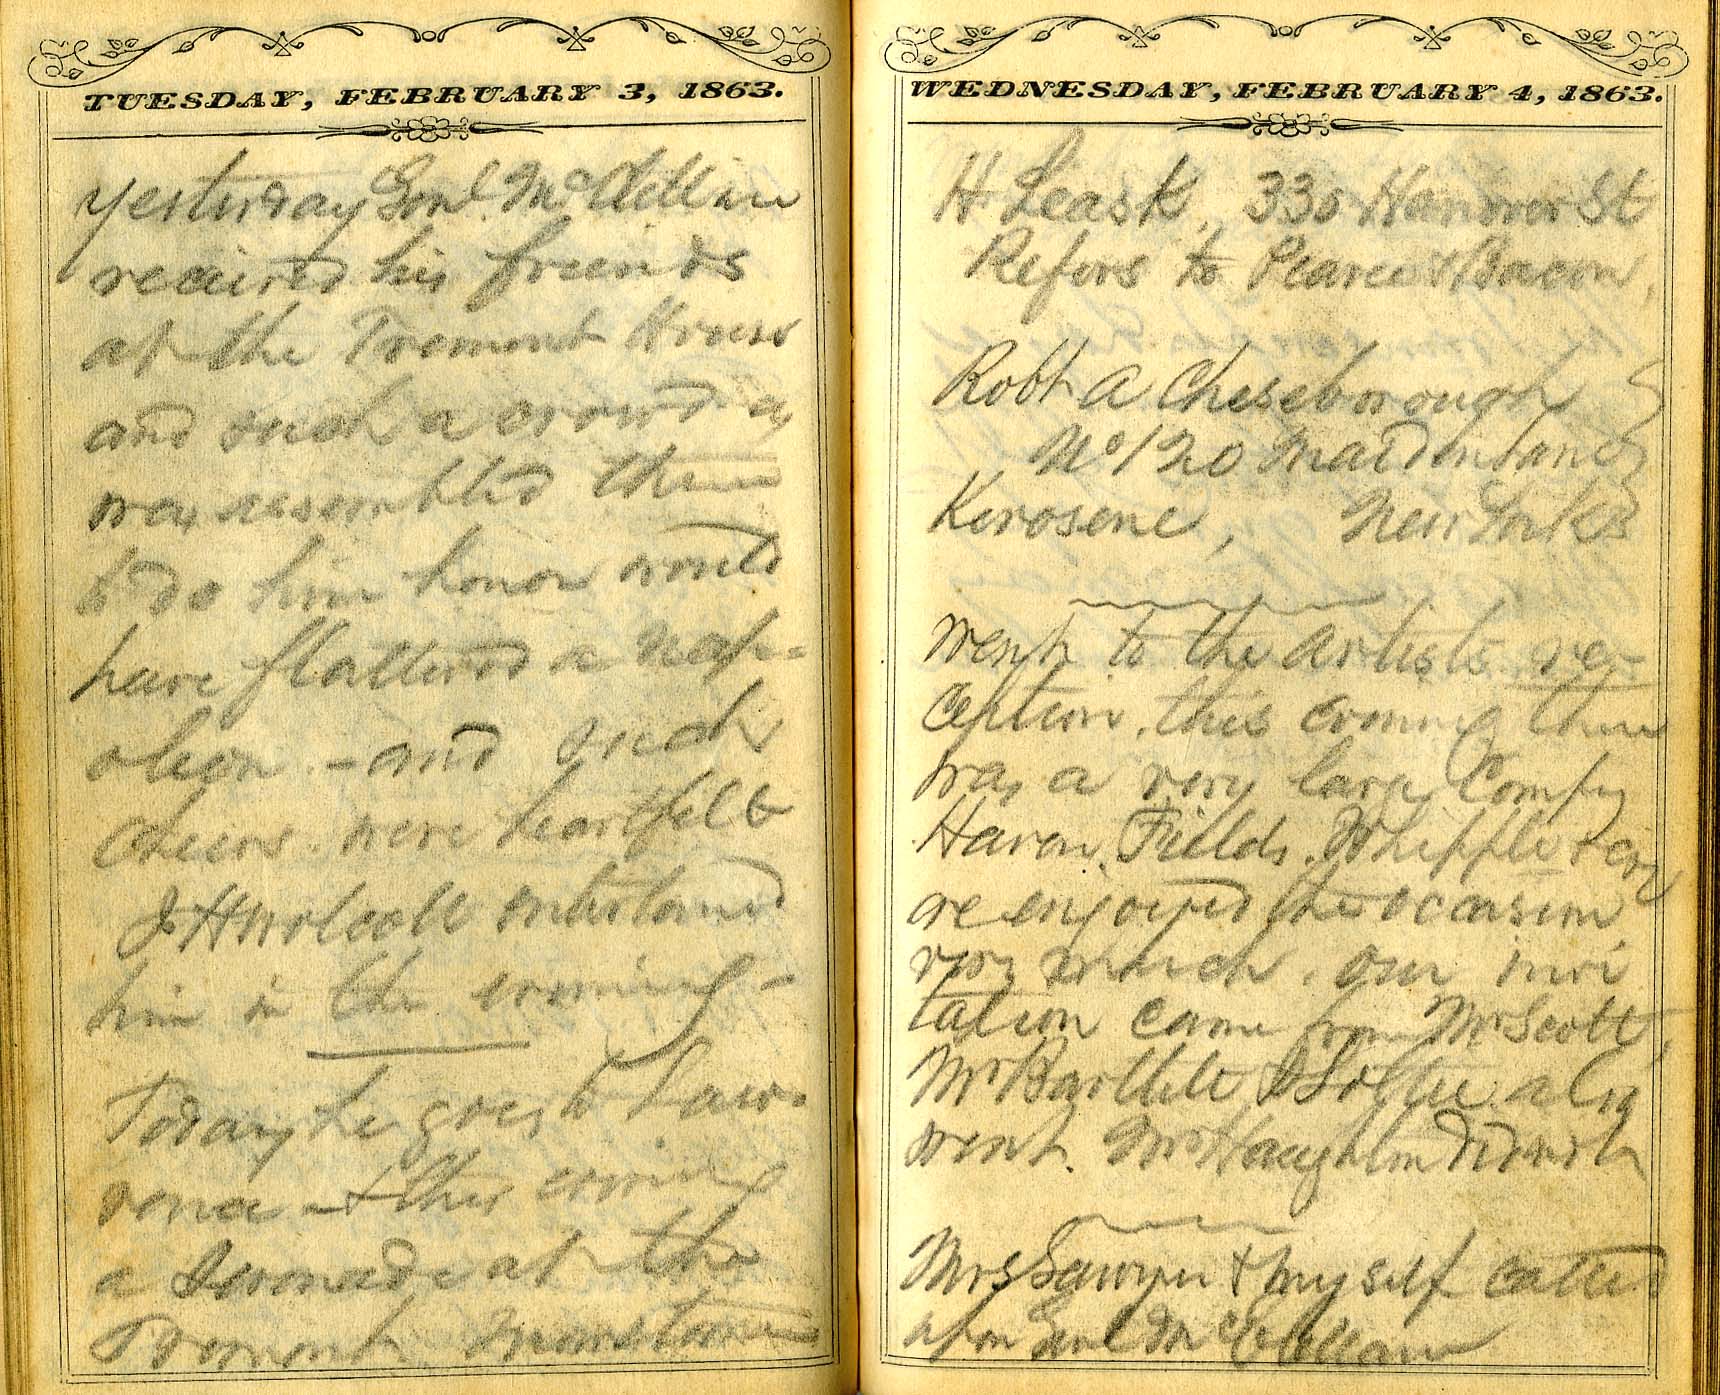 TUESDAY, FEBRUARY 3, 1863.
Yesterday Genl. McClellan
received his friends
at the Tremont House
and such a crowd as
was assembled there
to do him honor would
have flattered a Nap-
oleon - and such
cheers were heartfelt
J H Wolcott entertained
him in the evening -
Today he goes to Law-
rence - & this evening
a Serenade at the
Tremont
WEDNESDAY, FEBRUARY 4, 1863.
H Leask, 330 Hanover St
Refers to Pearce & Bacon,
Robt A Cheseborough
No 120 Maiden Lane
Kerosene, New York
Went to the Artists re-
ception this evening there
was a very large Compy
Haven, Fields, Whipple &
we enjoyed the occasion
very much. our invi
tation came from Mr Scott,
Mr Bartlett & Lottie also
went. McHaughton
Mrs Sawyer & myself called
upon Genl McClellan